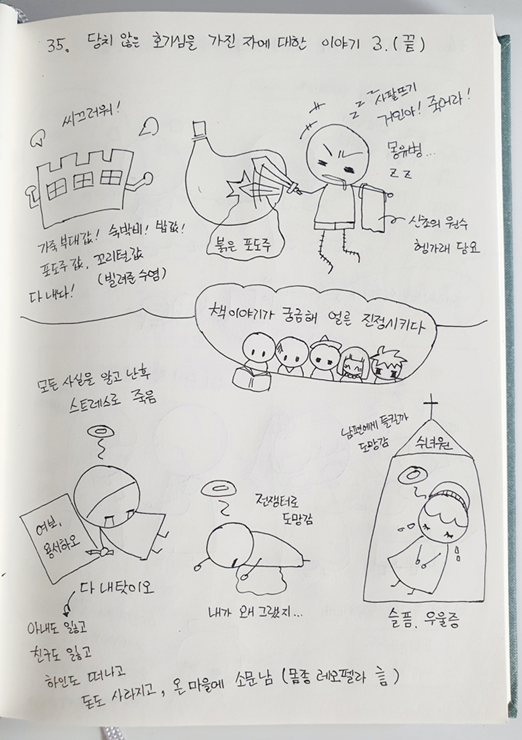 35. 당치 않은 호기심을 가진 자에 대한 이야기 3. (끝)
씨끄러워!
가죽 부대값! 숙박비! 밥값!
포도주 값, 꼬리털값
(빌려준 수염)
다 내놔!
붉은 포도주
z z z 사팔뜨기
거인아! 죽어라!
몽유병...
z z
산초의 원수
헹가래 담요
책 이야기가 궁금해 얼른 진정시키다
모든 사실을 알고 난 후
스트레스로 죽음
여보,
용서하오
다 내 탓이오
아내도 잃고
친구도 잃고
하인도 떠나고
돈도 사라지고, 온 마을에 소문남 (몸종 레오펠라 言)
전쟁터로
도망감
내가 왜 그랬지...
남편에게 들킬까
도망감
수녀원
슬픔, 우울증